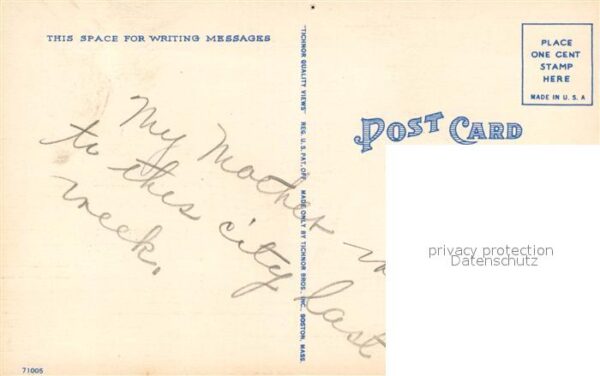 THIS SPACE FOR WRITING MESSAGES
"TICHNOR QUALITY VIEWS" REG. U. S. PAT. OFF. MADE ONLY BY TICHNOR BROS., INC., BOSTON, MASS.
PLACE
ONE CENT
STAMP
HERE
MADE IN U. S. A
POST CARD
My Mother
to this city last
week.
privacy protection
Datenschutz
71005